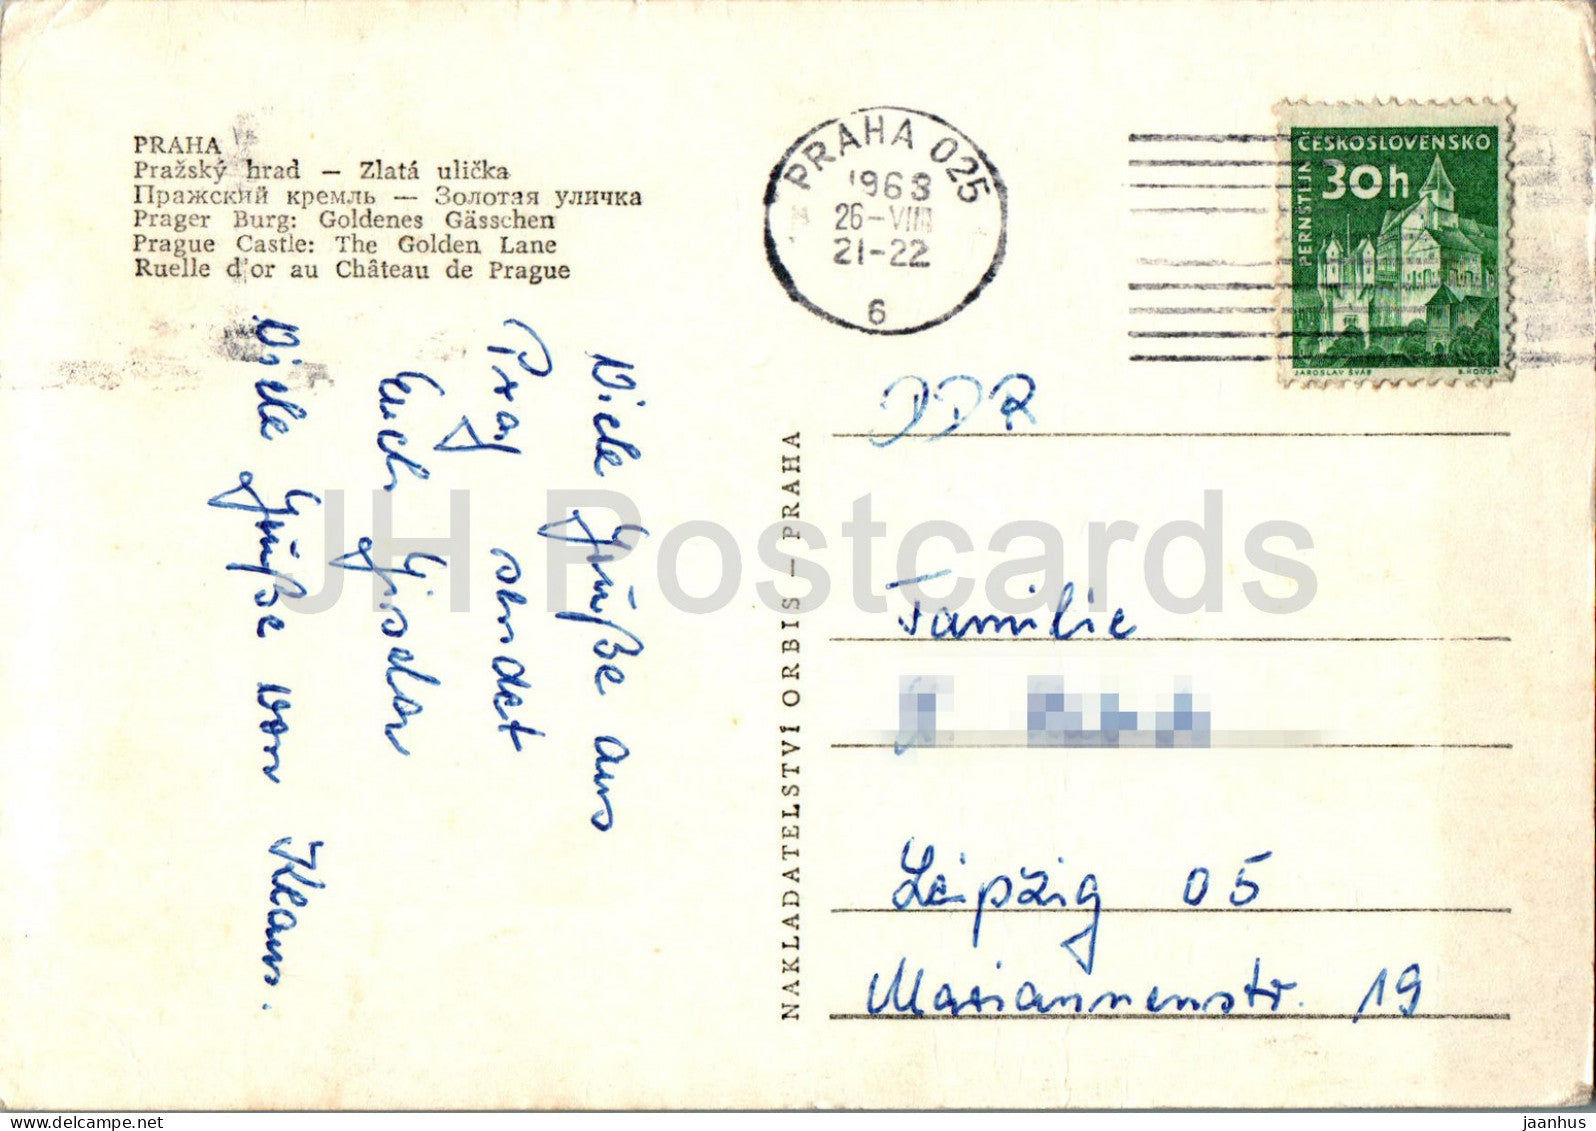 PRAHA
Pražský hrad — Zlatá ulička
Пражский кремль — Золотая уличка
Prager Burg: Goldenes Gässchen
Prague Castle: The Golden Lane
Ruelle d'or au Château de Prague
Viele Grüße aus
Prag sendet
Euch Giselar
Viele Grüße von Klaus.
NAKLADATELSTVÍ ORBIS — PRAHA
PRAHA 025
1963
26-VIII
21-22
6
ČESKOSLOVENSKO
30h
PERNŠTEJN
JAROSLAV ŠVÁB
B. HOUSA
DDR
Familie
Leipzig 05
Mariannenstr. 19
JH Postcards
jaanhus